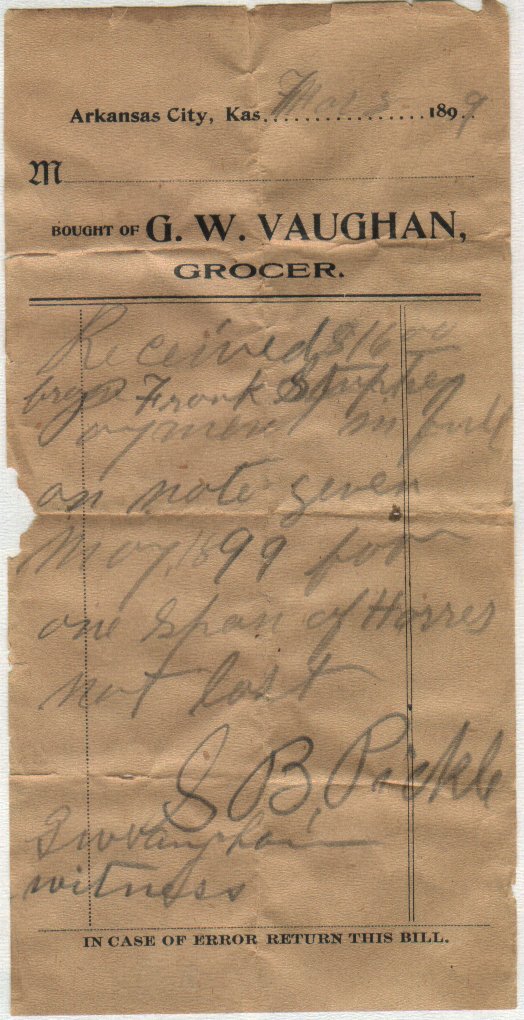 Arkansas City, Kas. 1899
M
BOUGHT OF G. W. VAUGHAN,
GROCER.
Received $16 00
Frank
payment in full
on note given
May, 1899 for
one span of Horres
not lost
S B. Pickle
G W Vaughan
witness
IN CASE OF ERROR RETURN THIS BILL.